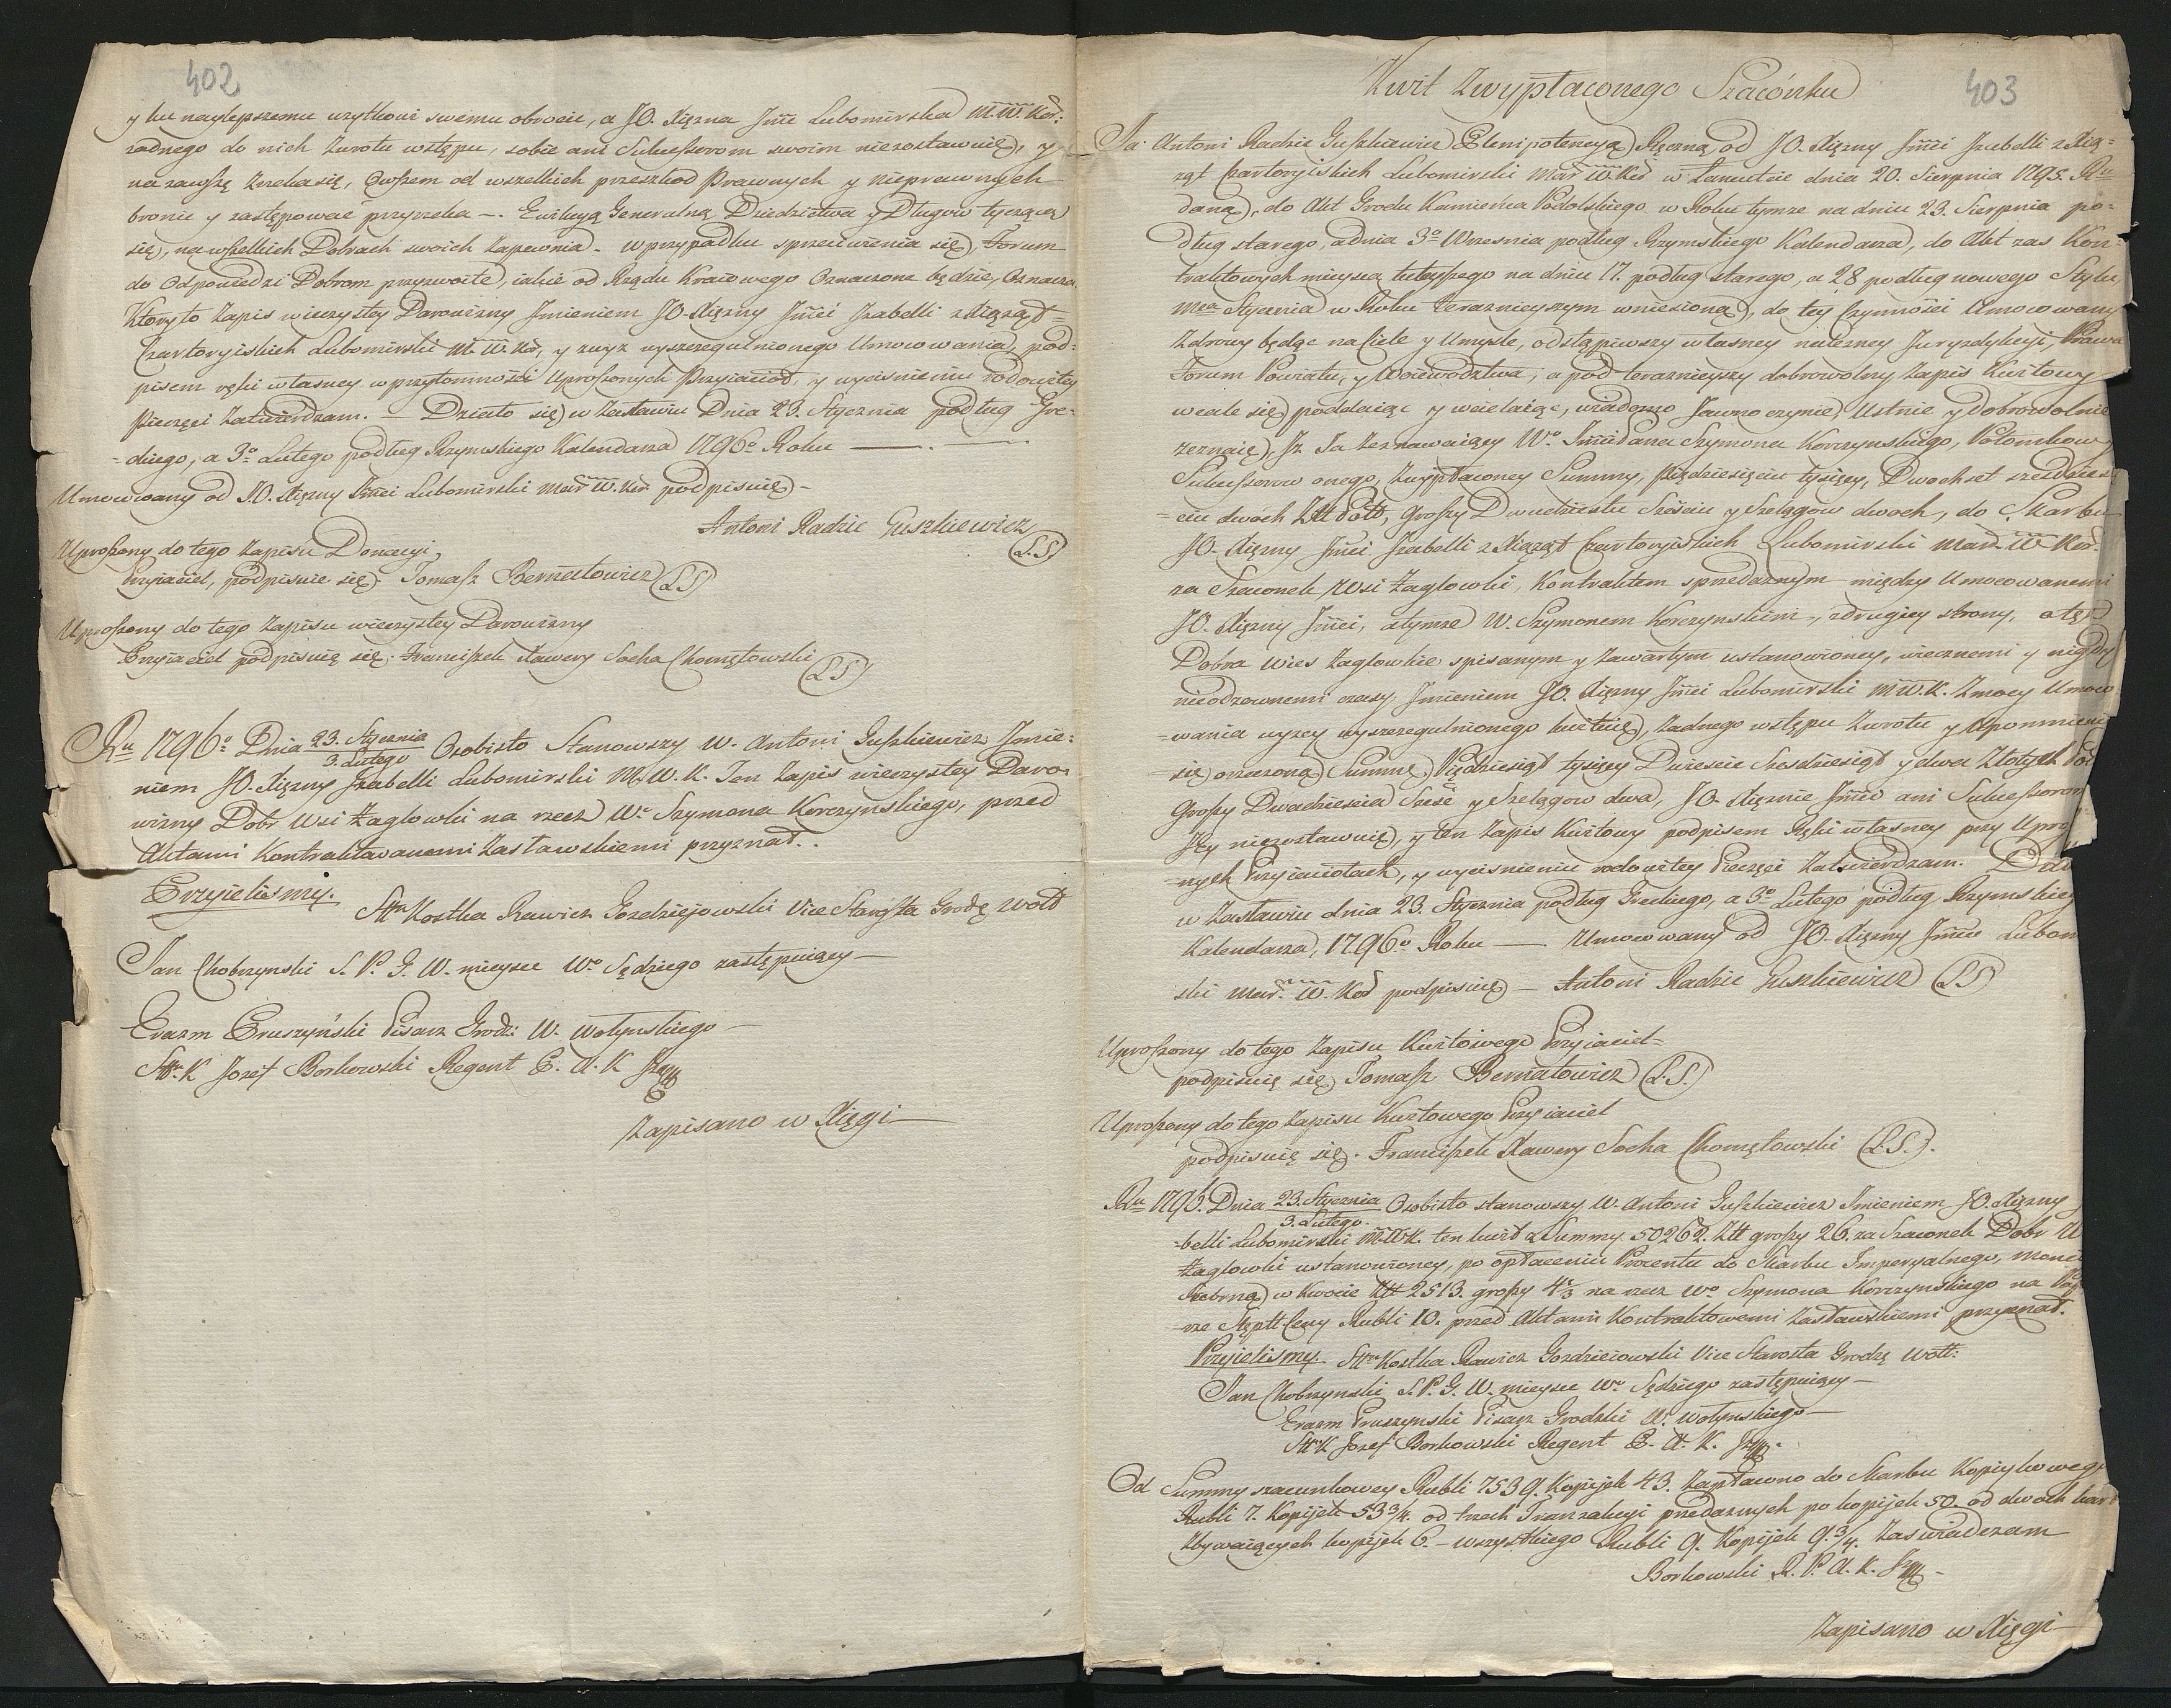 402
y ku naylepszemu użytkowi swemu obrocie, a JO. Xiężna Jmć Lubomirska M. W. Kor:
żadnego do nich zwrotu wstępu, sobie ani Sukceßorom swoim niezostawuię, y
na zawszę zrzeka się, Owszem od wszelkich przeszkod Prawnych y nieprawnych
bronic y zastępowac przyrzeka —. Ewikcyą Generalną Dziedzictwa y Długow tyczącą
się, na wszelkich Dobrach swoich zapewnia. W przypadku sprzeciwienia się, Forum
do Odpowiedzi Dobrom przyzwoite, iakie od Rządu Kraiowego Oznaczone będzie, Oznacza.
Ktoryto Zapis wieczystey Darowizny Imieniem JO. Xiężny Jmći Izabelli z Xiążąt
Czartoryiskich Lubomirski M. W. Kor, y z wyż wyszczegulnionego Umocowania, pod:
pisem ręki własney w przytomności Uproszonych Przyiacioł, y wycisnieniu rodowitey
Pieczęci Zatwierdzam. — Działo się w Zasławiu Dnia 23. Stycznia podług Gre-
-ckiego, a 3º Lutego podług Rzymskiego Kalendarza 1796º Roku —. —
Umocowany od JO. Xiężny Jmći Lubomirski Mar W. Kor podpisuię —
Antoni Radzic Guszkiewicz (L.S)
Uproszony do tego Zapisu Donacyi
Przyiaciel, podpisuie się. Tomasz Bernatowicz (L.S)
Uproszony do tego Zapisu wieczystey Darowizny
Przyiaciel podpisuię się. Franciszek Xawery Socha Chomętowski (L.S)
Ru 1796º Dnia 23. Stycznia / 3. Lutego Osobisto Stanowszy W. Antoni Guszkiewicz Imie:
niem JO. Xiężny Izabelli Lubomirski M. W. K. Ten Zapis wieczystey Daro-
wizny Dobr Wsi Zagłowki na rzecz Wº Szymona Korczynskiego, przed
Aktami Kontraktowanemi Zasławskiemi przyznał..
Przyieliśmy. Sttn Kostka Rawicz Gozdziejowski Vice Starosta Grodz Woł
Jan Chobrzynski S. P. G. W. mieysce Wº Sędziego zastępuiący —
Erazm Pruszyński Pisarz Grodz: W. Wołynskiego —
Stt. K Jozef Borkowski Regent P. A. K
Zapisano w Xięgi —
Kwit Z wypłaconego Szacónku
403
Ja Antoni Radzic Guszkiewicz Plenipotencyą Ręczną, od JO. Xiężny Jmći Izabelli z Xią-
żąt Czartoryiskich Lubomirski Mar W Kor w Łancucie dnia 20. Sierpnia 1795. Ru
daną, do Akt Grodu Kamieńca Podolskiego w Roku tymże na dniu 23. Sierpnia po-
dług starego, a dnia 3º Wrzesnia podług Rzymskiego Kalendarza, do Akt zas Kon-
traktowych mieysca tuteyszego na dniu 17. podług starego, a 28 podług nowego Stylu,
Mca Stycznia w Roku teraznieyszym wniesioną, do tey Czynności Umocowany
Zdrowy będąc na Ciele y Umyśle, odstąpiwszy własney należney Juryzdykcyi, Prawa
Forum Powiatu, y Woiewodztwa, a pod teraznieyszy dobrowolny Zapis Kwitowy
wcale się poddaiąc y wcielaiąc, wiadomo Jawno czynię, Ustnie y dobrowolnie
zeznaię, Iż Ja Zeznawaiący Wº Jmci Pana Szymona Korczynskiego, Potomkow
Sukceßorow onego, Z wypłaconey Summy, Pięcdziesięciu tysięcy, Dwochset szescdziesię-
ciu dwoch Ztt Poll, Groszy Dwudziestu Sześciu y szelągow dwoch, do Skarbu
JO. Xiężny Jmći Izabelli z Xiążąt Czartoryiskich Lubomirski Mar. W Kor.
za Szacunek Wsi Zagłowki, Kontraktem sprzedażnym między Umocowanemi
JO. Xiężny Jmći, a tymże W. Szymonem Korczynskim, z drugiey strony, o tęż
Dobra Wies Zagłowkie spisanym y Zawartym ustanowioney, wiecznemi y nigdy
nieodzownemi czasy Imieniem JO. Xiężny Jmći Lubomirski M W. K. Z mocy Umoco
-wania wyzey wyszczegulnionego kwituię, żadnego wstępu zwrotu y Upomnienia
się orzeczoną Summę Pięcdziesiąt tysięcy Dwiescie Szescdziesiąt y dwa Złotych Pol
Groszy Dwadziescia Szesć y Szelągow dwa, JO. Xiężnie Jmći ani Sukceßorom
Jey niezostawuię, y ten Zapis Kwitowy podpisem Ręki własney przy Upro
-nych Przyiaciołach, y wycisnieniu rodowitey Pieczęci Zatwierdzam. Dzia
w Zasławiu dnia 23. Stycznia podług Greckiego, a 3º Lutego podług Rzymskieg
Kalendarza, 1796º Roku —. Umocowany od JO. Xiężny Jmći Lubom
ski Mar. W. Kor podpisuię — Antoni Radzic Guszkiewicz (L.S)
Uproszony do tego Zapisu Kwitowego Przyiaciel-
podpisuię się Tomasz Bernatowicz (L.S.)
Uproszony do tego Zapisu Kwitowego Przyiaciel
podpisuię się. Franciszek Xawery Socha Chomętowski (L.S.).
Ru 1796. Dnia 23. Stycznia / 3. Lutego. Osobisto stanowszy W. Antoni Guszkiewicz Imieniem JO. Xiężny
-belli Lubomirski M. W K. ten kwit z Summy. 50262. Ztt groszy 26. za Szacunek Dobr W
Zagłowki ustanowioney, po opłaceniu Procentu do Skarbu Imperyalnego, mone
srebrną w kwocie Ztt 2513. groszy 4 2/3 na rzecz Wº Szymona Korczynskiego na Pap
-rze Sttęptt Ceny Rubli 10. przed Aktami Kontraktowemi Zasławskiemi przyznał.
Przyieliśmy. Sttn Kostka Rawicz Gozdzieiowski Vice Starosta Grodz Wołł:
Jan Chobrzynski S. P. G. W. mieysce Wº Sędziego zastępuiący —
Erazm Pruszynski Pisarz Grodzki W. Wołynskiego —
Stt. K Jozef Borkowski Regent P. A. K.
Od Summy szacunkowey Rubli 7539. Kopijek 43. Zapłacono do Skarbu Kopiykowego
Rubli 7. Kopijek 53 3/4. od trzech Tranzakcyi przedaznych po kopijek 50. od dwoch kar
Zbywaiących kopijek 6. — wszystkiego Rubli 9. Kopijek 9. 3/4. Zaswiadczam
Borkowski R. P. A. K.
Zapisano w Xięgi —